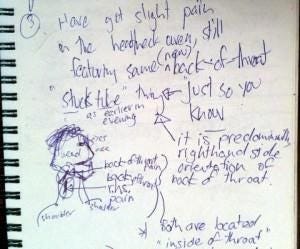 3
Have got slight pain
in the head/neck over, still
featuring same (now) back-of-throat
"stuck
thing
"just so you
know
as earlier in
evening
it is predominantly
righthand side
orientation of
back of throat.
head
back of throat
pain
back of throat
r.h.s.
pain
shoulder
shoulder
* Both are located
"inside of throat"